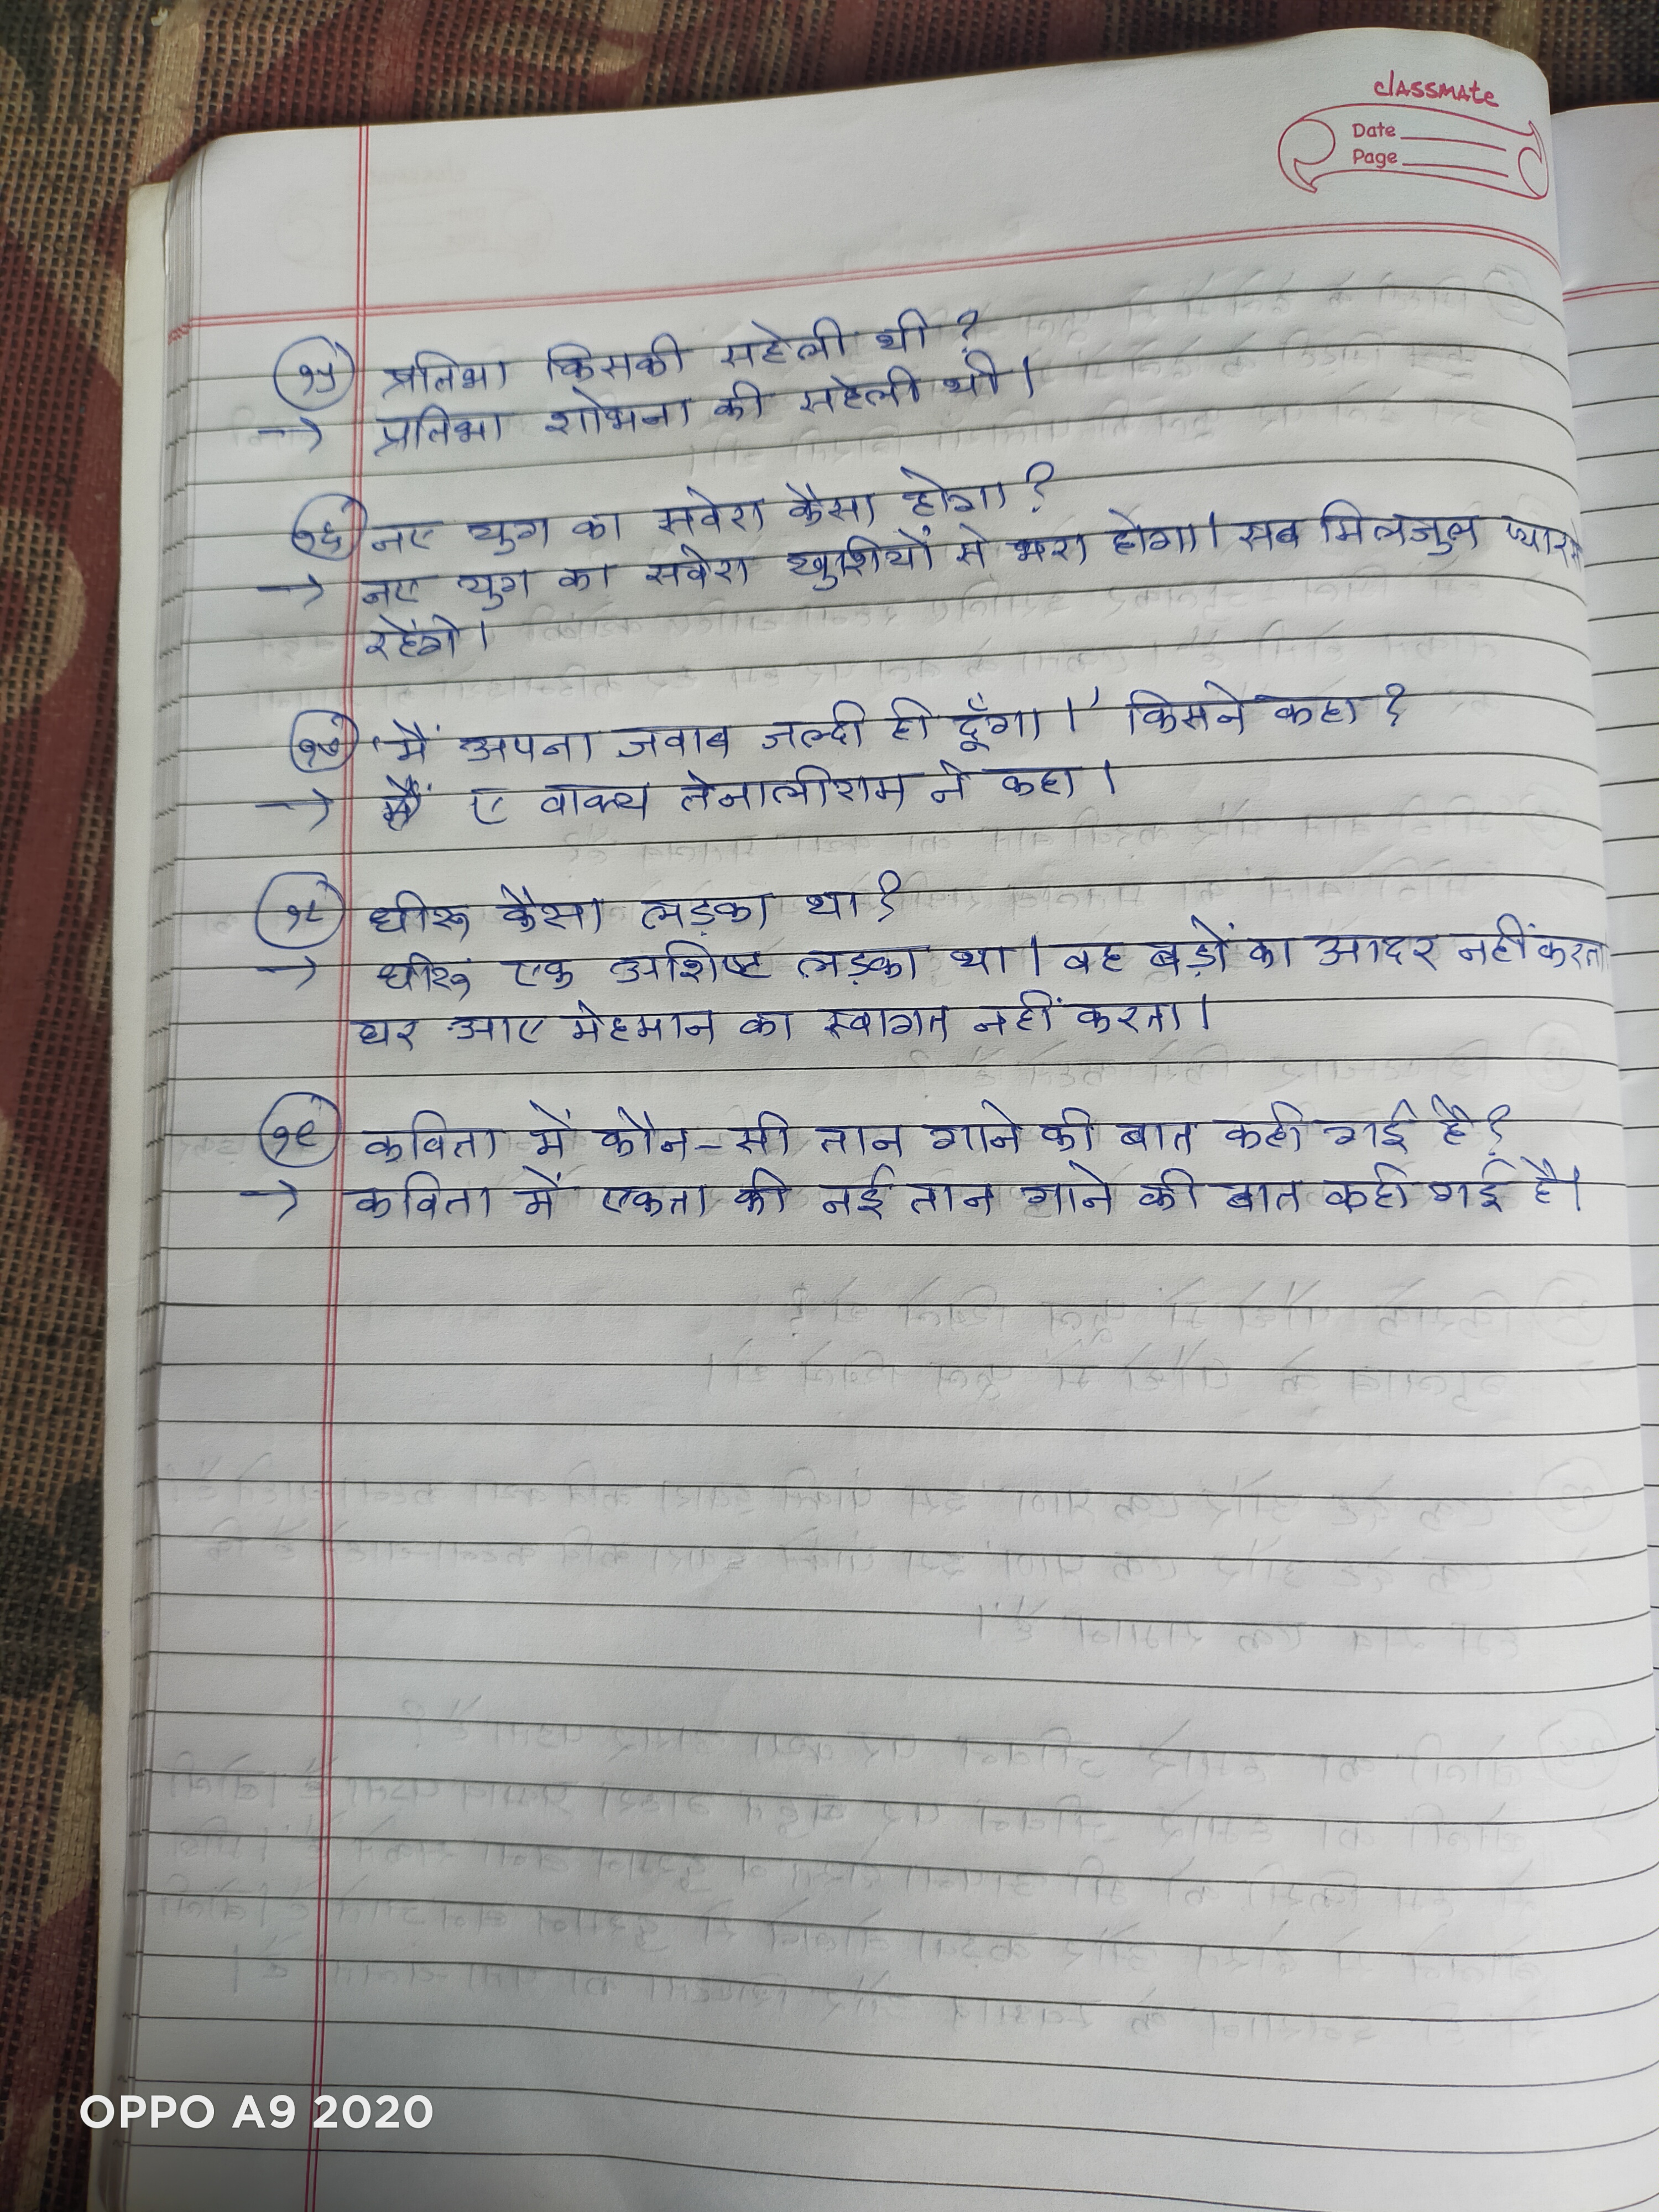 classmate
Date
Page
१५ प्रतिभा किसकी सहेली थी ?
→ प्रतिभा शोभना की सहेली थी।
१६ नए युग का सवेरा कैसा होगा ?
→ नए युग का सवेरा खुशियों से भरा होगा। सब मिलजुल प्यार से
रहेंगे।
१७ 'मैं अपना जवाब जल्दी ही दूँगा।' किसने कहा ?
→ ए वाक्य तेनालीराम ने कहा।
१८ धीरू कैसा लड़का था ?
→ धीरू एक अशिष्ट लड़का था। वह बड़ों का आदर नहीं करता
घर आए मेहमान का स्वागत नहीं करता।
१९ कविता में कौन-सी तान गाने की बात कही गई है ?
→ कविता में एकता की नई तान गाने की बात कही गई है।
OPPO A9 2020